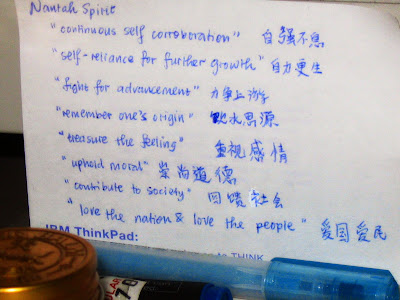 Nantah Spirit
"continuous self corroboration" 自强不息
"self-reliance for further growth" 自力更生
"fight for advancement" 力争上游
"remember one's origin" 飲水思源
"treasure the feeling" 重視感情
"uphold moral" 崇尚道德
"contribute to society" 回馈社会
"love the nation & love the people" 爱国爱民
IBM ThinkPad:
THINK